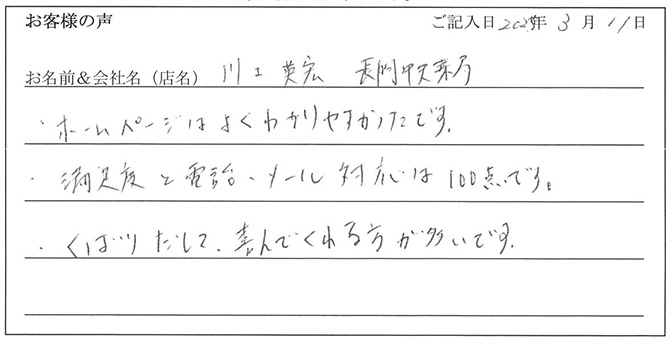 お客様の声 ご記入日 202 年 3 月 11 日
お名前&会社名（店名） 川上 英宏 長門中央薬局
・ホームページはよくわかりやすかったです。
・満足度と電話・メール対応は100点です。
・くばりだして、喜んでくれる方が多いです。